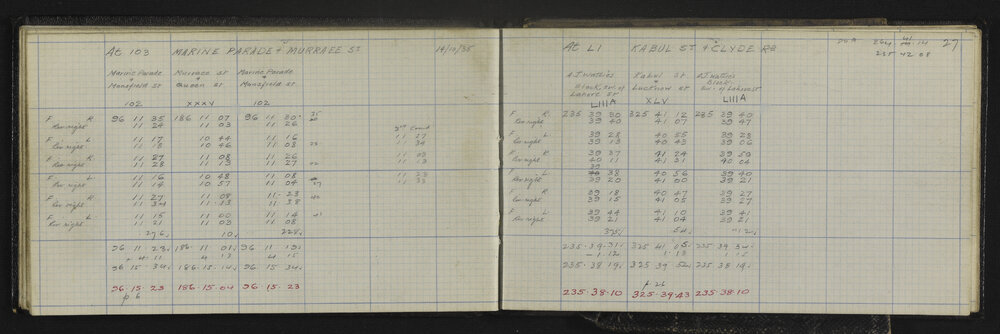 At 103 MARINE PARADE & MURRAEE ST 14/10/35
Marine Parade & Mansfield St
Murraee St & Queen St
Marine Parade & Mansfield St
102 XXXV 102
F R 96 11 35 186 11 07 96 11 30
Rev right 11 24 11 03 11 26
L 11 17 10 44 11 16
Rev right 11 18 10 46 11 08
R 11 27 11 08 11 26
Rev right 11 28 11 13 11 27
F L 11 16 10 48 11 08
Rev right 11 14 10 57 11 04
F R 11 27 11 08 11 23
Rev right 11 34 11 13 11 38
F L 11 15 11 00 11 14
Rev right 11 21 11 03 11 08
276 10 228
96 11 23 186 11 01 96 11 19
+ 4 11 4 13 4 15
96 15 34 186 15 14 96 15 34
96 15 23 186 15 04 96 15 23
p 6
At L1 KABUL ST & CLYDE RD 27
235 42 08
A.J. Watkins Block, sw. of Lahore St
Kabul St & Lucknow St
A.J. Watkins Block, sw. of Lahore St
LIIIA XLV LIIIA
F R 235 39 30 325 41 12 235 39 40
Rev right 39 40 41 07 39 47
L 39 28 40 55 39 28
Rev right 39 13 40 43 39 06
R 39 37 41 24 39 59
Rev right 40 11 41 31 40 04
F L 39 38 40 56 39 40
Rev right 39 20 41 00 39 21
F R 39 18 40 47 39 27
Rev right 39 15 41 05 39 27
F L 39 44 41 10 39 41
Rev right 39 21 41 04 39 21
235 39 31 325 41 05 235 39 34
- 1 12 1 13 1 15
235 38 19 325 39 52 235 38 19
p 26
235 38 10 325 39 43 235 38 10